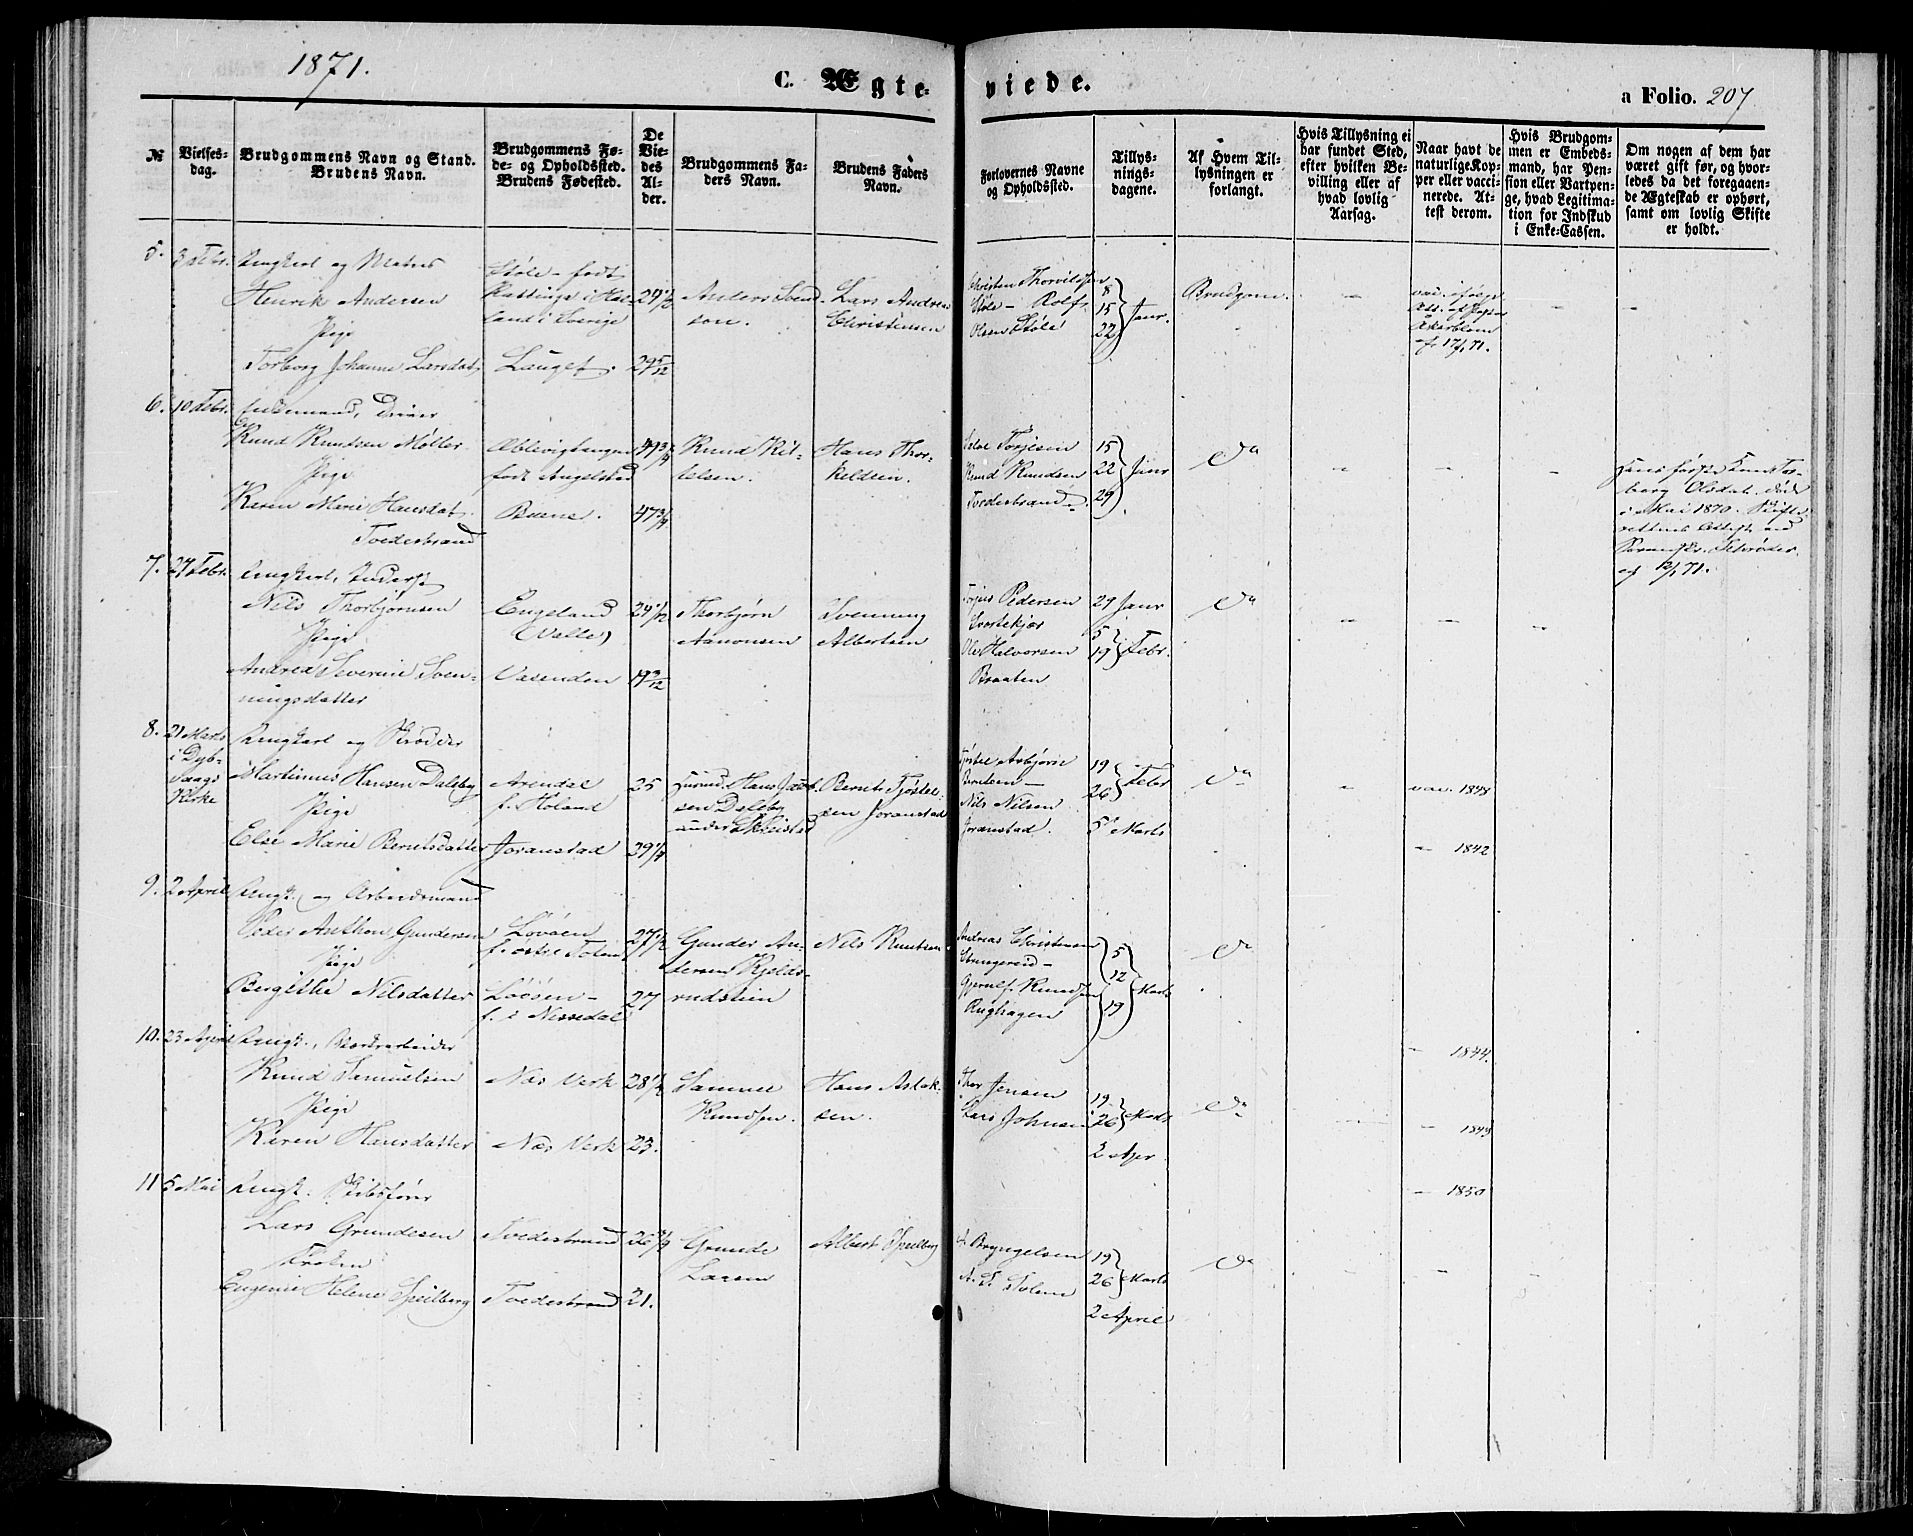 1871.
C. Ægte-
viede.
a Folio. 207
№
Vielses-
dag.
Brudgommens Navn og Stand.
Brudens Navn.
Brudgommens Fø-
de- og Opholdssted.
Brudens Fødested.
De
Vie-
des
Al-
der.
Brudgommens Fa-
ders Navn.
Brudens Faders
Navn.
Forlovernes Navne
og Opholdssted.
Tillys-
nings-
dagene.
Af Hvem Til-
lysningen er
forlangt.
Hvis Tillysning ei
har fundet Sted,
efter hvilken Be-
villing eller af
hvad lovlig
Aarsag.
Naar havt de
naturlige Kop-
per eller vacci-
nerede. At-
test derom.
Hvis Brudgom-
men er Embeds-
mand, har Pen-
sion eller Vartpen-
ge, hvad Legitima-
tion for Indskud
i Enke-Cassen.
Om nogen af dem har
været gift før, og hvor-
ledes da det foregaaen-
de Ægteskab er ophørt,
samt om lovlig Skifte
er holdt.
5. 3 Febr. Ungkarl og Matros
Henrik Andersen
Pige
Torborg Johanne Larsdat.
Støle - født
land i Sverige
Lauget.
24 1/2
29 5/12
Anders Svend-
sen.
Lars Andreas
Christensen
Christen Thorvildsen
Støle - Rolf
Olsen Støle
8
15
22
Janr.
Brudgom.
17/1 71.
6. 10 Febr. Enkemand,
Knud Knudsen Møller
Pige
Karen Marie Hansdat.
Tvedestrand
født Angelstad
49 3/4
47 3/4
Knud Kit-
telsen.
Hans Thor-
keldsen.
Torjesen
Knud Knudsen
Tvedestrand
15
22
29
Janr
Do
berg Olsdat. døde
i Mai 1870. Skifte-
rettens Attest ved
Schrøder
7. 27 Febr. Ungkarl, Inderst
Nils Thorbjørnsen
Pige
Andrea Severine Sven-
ningsdatter
Engeland
(Valle)
Vasenden
24 1/2
19 3/12
Thorbjørn
Aanonsen
Svenning
Albertsen
Torjus Pedersen
Svartekjær
Ole Halvorsen
Braaten
29 Janr
5
19
Febr.
Do
8. 21 Marts
i Dyb-
vaags
Kirke
Ungkarl og Skrædder
Martinus Hansen Daleby
Pige
Else Marie Berntsdatter
Arendal
f. Høland
Joranstad
25
29 1/4
Husmd. Hans Jacob-
sen Daleby
under
Bernt Tjøstel-
sen Joranstad
Tjøstel Asbjørn
Berntsen -
Nils Nilsen
Joranstad.
19
26
Febr
5 Marts
Do
vac. 1848
- 1842
9. 2 April Ungk. og Arbeidsmand
Peder Anthon Gundersen
Pige
Bergithe Nilsdatter
Løvåsen
f. østre Toten
Løvåsen -
f. i Nissedal
27 1/2
27
Gunder An-
dersen Kjelds-
rudsteien
Nils Knutsen
Andreas Christensen
Strengereid -
Gjerulf Knudsen
Rughagen
5
12
19
Marts
Do
10. 23 April Ungk., Værksarbeider
Knud Samuelsen
Pige
Karen Hansdatter
Næs Verk
Næs Verk
28 1/4
23.
Samuel
Knudsen.
Hans Aslak-
sen.
Thor Jensen
Lars Johnsen
19
26
Marts
2 Apr.
Do
- 1844.
- 1849
11 5 Mai Ungk. Skibsfører
Lars Grundesen
Frøken
Eugenie Helene Speilberg
Tvedestrand
Tvedestrand
26 3/4
21.
Grunde
Larsen
Albert Speilberg
Bryngelsen
19
26
Marts
2 April
Do
- 1850